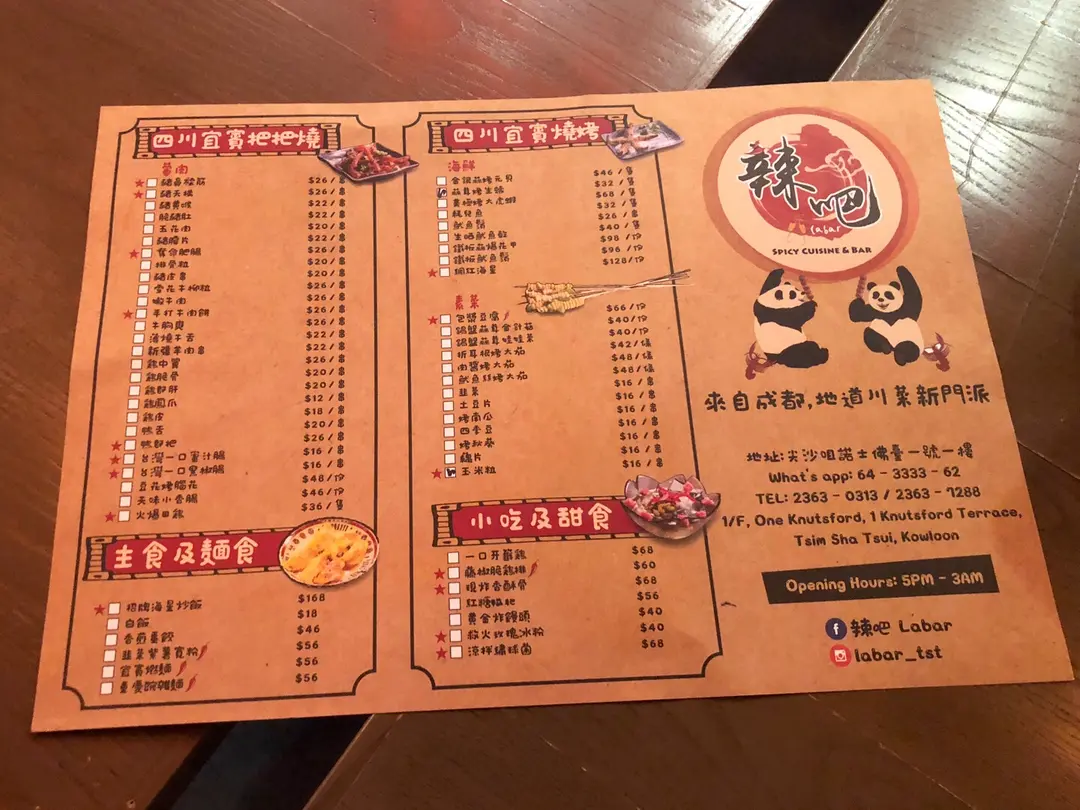 四川宜賓把把燒
葷肉
豬鼻軟筋 $26 / 串
豬天梯 $26 / 串
豬黃喉 $22 / 串
脆豬肚 $22 / 串
五花肉 $22 / 串
豬腰片 $20 / 串
奪命肥腸 $22 / 串
排骨粒 $26 / 串
豬皮串 $20 / 串
雪花牛柳粒
嫩牛肉
手打牛肉餅 $26 / 串
牛胸爽
薄燒牛舌
新疆羊肉串
雞中翼
雞脆骨
雞郡肝
雞鳳爪
雞皮
鴨舌
鴨郡把
台灣一口蜜汁腸 $16 / 串
台灣一口黑椒腸 $16 / 串
豆花烤腦花 $48 / 份
天味小香腸 $46 / 份
火爆田雞 $36 / 隻
主食及麵食
招牌海星炒飯 $168
白飯 $18
香煎棗餃 $46
韭菜苕薯寬粉 $56
宜賓燃麵 $56
重慶豌雜麵 $56
四川宜賓燒烤
海鮮
金銀蒜烤元貝 $46 / 隻
蒜茸烤生蠔 $32 / 隻
黃極烤大虎蝦 $68 / 隻
桃兒魚 $32 / 隻
魷魚鬚 $26 / 串
生晒魷魚乾 $40 / 隻
鐵板蒜楊花甲 $98 / 份
鐵板魷魚鬚 $96 / 份
網紅海星 $128/份
素菜
包漿豆腐 $66/份
錫盤蒜茸金針菇 $40/份
錫盤蒜茸娃娃菜 $40/份
折耳根烤大茄 $42/條
肉醬烤大茄 $48/條
魷魚絲烤大茄 $48/條
韭菜 $16 / 串
土豆片 $16 / 串
烤南瓜 $16 / 串
四季豆 $16 / 串
烤秋葵 $16 / 串
藕片 $16 / 串
玉米粒 $16 / 串
小吃及甜食
一口开酥雞 $68
藤椒脆雞排 $60
現炸香酥骨 $68
紅糖糍粑 $56
黃金炸饅頭 $40
救火玫瑰冰粉 $40
涼拌繡球菌 $68
辣吧
Labar
SPICY CUISINE & BAR
來自成都,地道川菜新門派
地址:尖沙咀諾士佛臺一號一樓
What's app: 64 - 3333 - 62
TEL: 2363 - 0313 / 2363 - 7288
1/F, One Knutsford, 1 Knutsford Terrace,
Tsim Sha Tsui, Kowloon
Opening Hours: 5PM - 3AM
辣吧 Labar
labar_tst